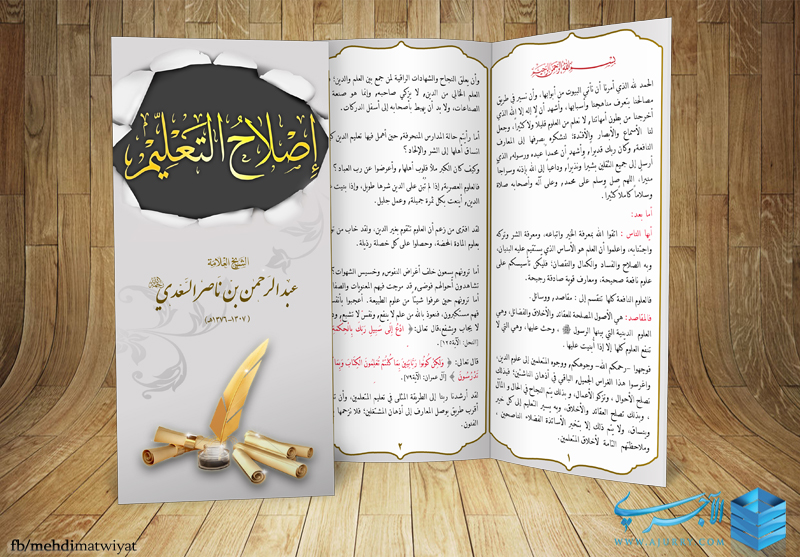 إصلاح التعليم
الشيخ العلامة
عبد الرحمن بن ناصر السعدي
(١٣٠٧-١٣٧٦هـ)
بسم الله الرحمن الرحيم
الحمد لله الذي أمرنا أن نأتي البيوت من أبوابها، وأن نسير في طريق
مصالحنا بتعرف مناهجها وأسبابها، وأشهد أن لا إله إلا الله الذي
أخرجنا من بطون أمهاتنا، لا نعلم من العلوم قليلا ولا كثيرا، وجعل
لنا الأسماع والأبصار والأفئدة؛ لنشكره بصرفها إلى المعارف
النافعة، وكان ربك قديرا، وأشهد أن محمدا عبده ورسوله، الذي
أرسل إلى جميع الثقلين بشيرا ونذيرا، وداعيا إلى الله بإذنه وسراجا
منيرا. اللهم صل وسلم على محمد، وعلى آله وأصحابه صلاة
وسلاما كاملا كثيرا.
أما بعد:
أيها الناس : اتقوا الله بمعرفة الخير واتباعه، ومعرفة الشر وتركه
واجتنابه، واعلموا أن العلم هو الأساس الذي يستقيم عليه البنيان،
وبه الصلاح والفساد والكمال والنقصان؛ فليكن تأسيسكم على
علوم نافعة صحيحة، ومعارف قوية صادقة رجيحة.
فالعلوم النافعة كلها تنقسم إلى : مقاصد، ووسائل.
فالمقاصد: هي الأصول المصلحة للعقائد والأخلاق والفضائل، وهي
العلوم الدينية التي بينها الرسول ﷺ ، وحث عليها، وهي التي لا
تنفع العلوم كلها إلا إذا انبنيت عليها .
فوجهوا –رحمكم الله– وجوهكم، ووجوه المتعلمين إلى علوم الدين،
واغرسوا هذا الغراس الجميل، الباقي في أذهان الناشئين؛ فبذلك
تصلح الأحوال ، وتزكو الأعمال، و بذلك يتم النجاح في الحال و المآل
، وبذلك تصلح العقائد والأخلاق، وبه يسير التعليم إلى كل خير
وينساق، ولا يتم ذلك إلا بتخير الأساتذة الفضلاء الناصحين ،
وملاحظتهم التامة لأخلاق المتعلمين.
١
وأن يعلق النجاح والشهادات الراقية لمن جمع بين العلم والدين؛
العلم الخالي من الدين، لا يزكي صاحبه، وإنما هو صنعة
الصناعات، ولا بد أن يهبط بأصحابه إلى أسفل الدركات.
أما رأيتم حالة المدارس المنحرفة، حين أهمل فيها تعليم الدين
انساق أهلها إلى الشر والإلحاد؟
وكيف كان الكبر ملأ قلوب أهلها، وأعرضوا عن رب العباد؟
فالعلوم العصرية، إذا لم تبن على الدين شرها طويل، وإذا بنيت
الدين، أينعت بكل ثمرة جميلة، وعمل جليل.
لقد افترى من زعم أن العلوم تقوم بغير الدين، ولقد خاب من
بعلوم المادة المحضة، وحصلوا على كل خصلة رذيلة.
أما ترونهم يسعون خلف أغراض النفوس، وخسيس الشهوات؟
تشاهدون أحوالهم فوضى، قد مرجت فيهم المعنويات
أما ترونهم حين عرفوا شيئا من علوم الطبيعة، أعجبوا
فهم مستكبرون، فنعوذ بالله من علم لا ينفع، ونفس لا تشبع،
لا يجاب ويشفع،قال تعالى:﴿ ادْعُ إِلَى سَبِيلِ رَبِّكَ بِالْحِكْمَةِ
[النحل: الآية١٢٥].
قال تعالى: ﴿ وَلَكِنْ كُونُوا رَبَّانِيِّينَ بِمَا كُنْتُمْ تُعَلِّمُونَ الْكِتَابَ وَبِمَا
تَدْرُسُونَ ﴾ [آل عمران: الآية٧٩].
لقد أرشدنا ربنا إلى الطريقة المثلى في تعليم المتعلمين، وأن
أقرب طريق يوصل المعارف إلى أذهان المشتغلين؛ فلا نزحمها
الفنون.
٢
fb/mehdimatwiyat
الآجري
WWW.AJURRY.COM